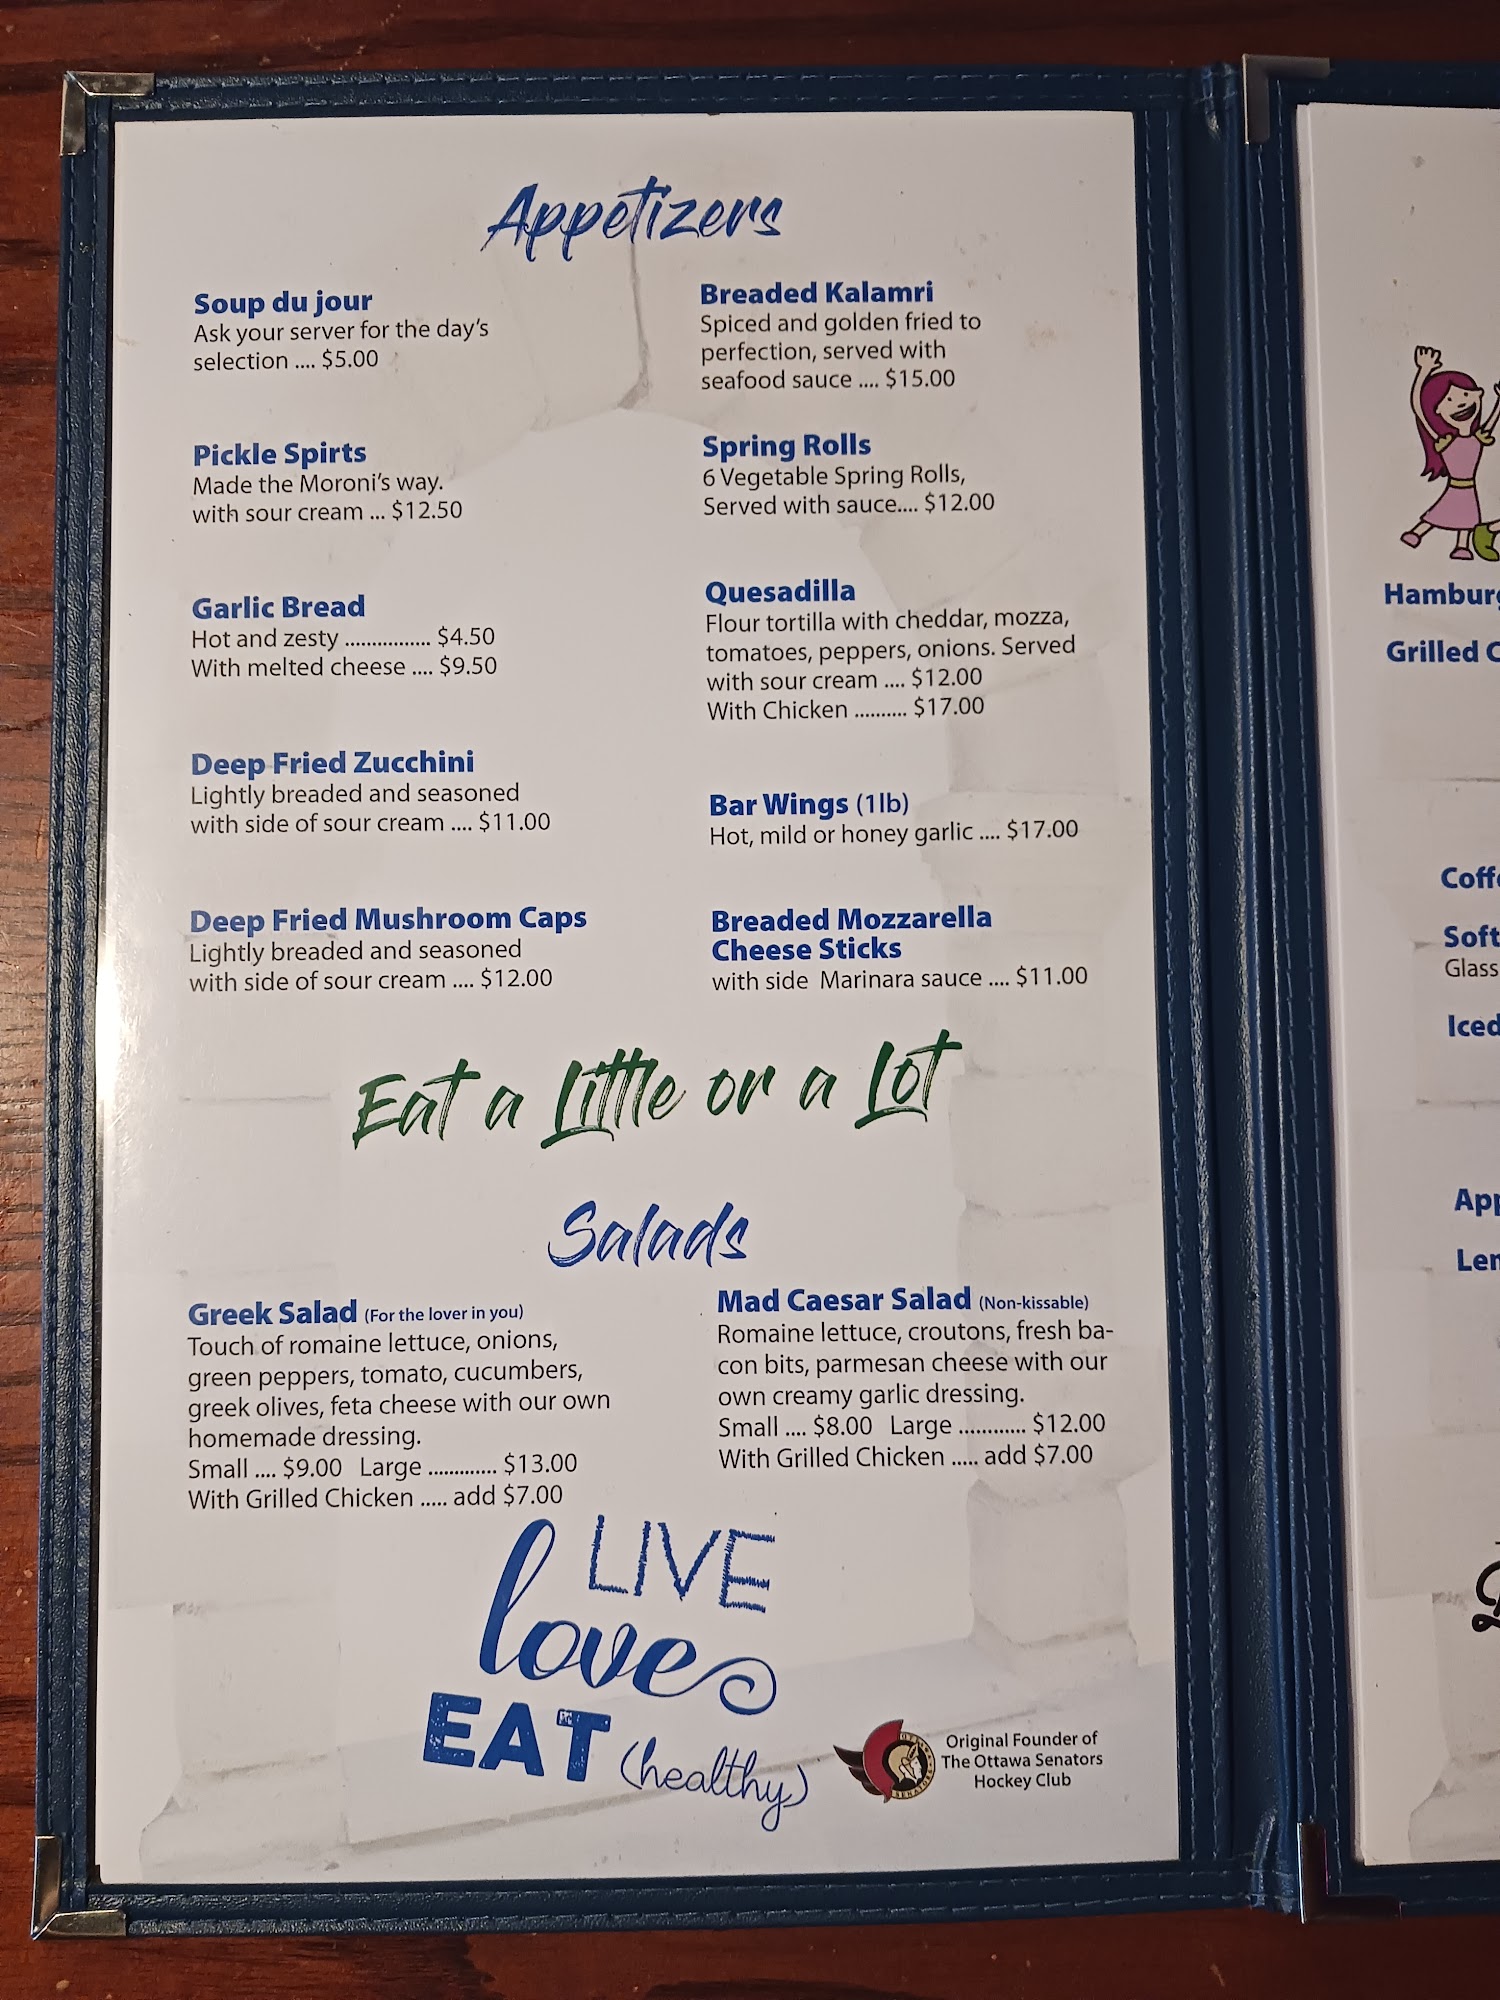 Appetizers
Soup du jour
Ask your server for the day's
selection .... $5.00
Pickle Spirts
Made the Moroni's way.
with sour cream ... $12.50
Garlic Bread
Hot and zesty ................ $4.50
With melted cheese .... $9.50
Deep Fried Zucchini
Lightly breaded and seasoned
with side of sour cream .... $11.00
Deep Fried Mushroom Caps
Lightly breaded and seasoned
with side of sour cream .... $12.00
Breaded Kalamri
Spiced and golden fried to
perfection, served with
seafood sauce .... $15.00
Spring Rolls
6 Vegetable Spring Rolls,
Served with sauce.... $12.00
Quesadilla
Flour tortilla with cheddar, mozza,
tomatoes, peppers, onions. Served
with sour cream .... $12.00
With Chicken .......... $17.00
Bar Wings (1lb)
Hot, mild or honey garlic .... $17.00
Breaded Mozzarella
Cheese Sticks
with side Marinara sauce .... $11.00
Eat a Little or a Lot
Salads
Greek Salad (For the lover in you)
Touch of romaine lettuce, onions,
green peppers, tomato, cucumbers,
greek olives, feta cheese with our own
homemade dressing.
Small .... $9.00 Large ............. $13.00
With Grilled Chicken ..... add $7.00
Mad Caesar Salad (Non-kissable)
Romaine lettuce, croutons, fresh ba-
con bits, parmesan cheese with our
own creamy garlic dressing.
Small .... $8.00 Large ............. $12.00
With Grilled Chicken ..... add $7.00
LIVE
love
EAT (healthy)
Original Founder of
The Ottawa Senators
Hockey Club
Hamburg
Grilled C
Coff
Soft
Glass
Iced
App
Len